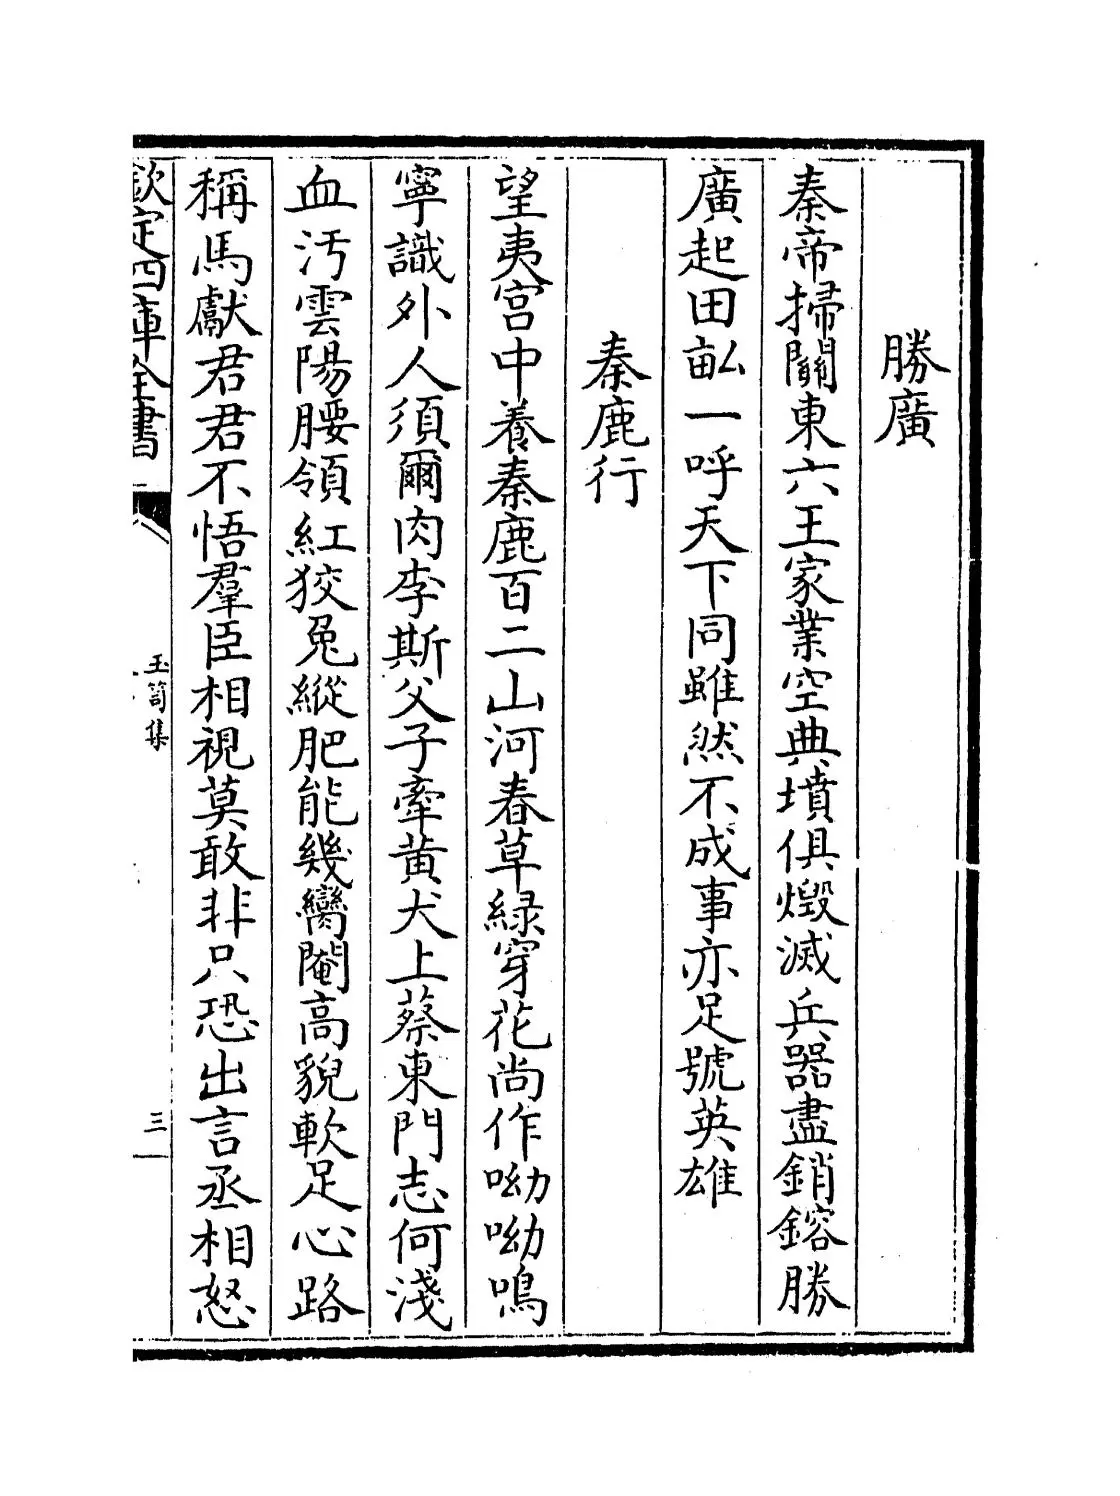 勝廣
秦帝掃關東六王家業空典墳俱燬滅兵器盡銷鎔勝
廣起田畝一呼天下同雖然不成事亦足號英雄
秦鹿行
望夷宮中養秦鹿百二山河春草緑穿花尚作呦呦鳴
寧識外人須爾肉李斯父子牽黄犬上蔡東門志何淺
血汚雲陽腰領紅狡兔縱肥能幾臠閹高貌軟足心路
稱馬獻君君不悟羣臣相視莫敢非只恐出言丞相怒
欽定四庫全書
玉笥集
三